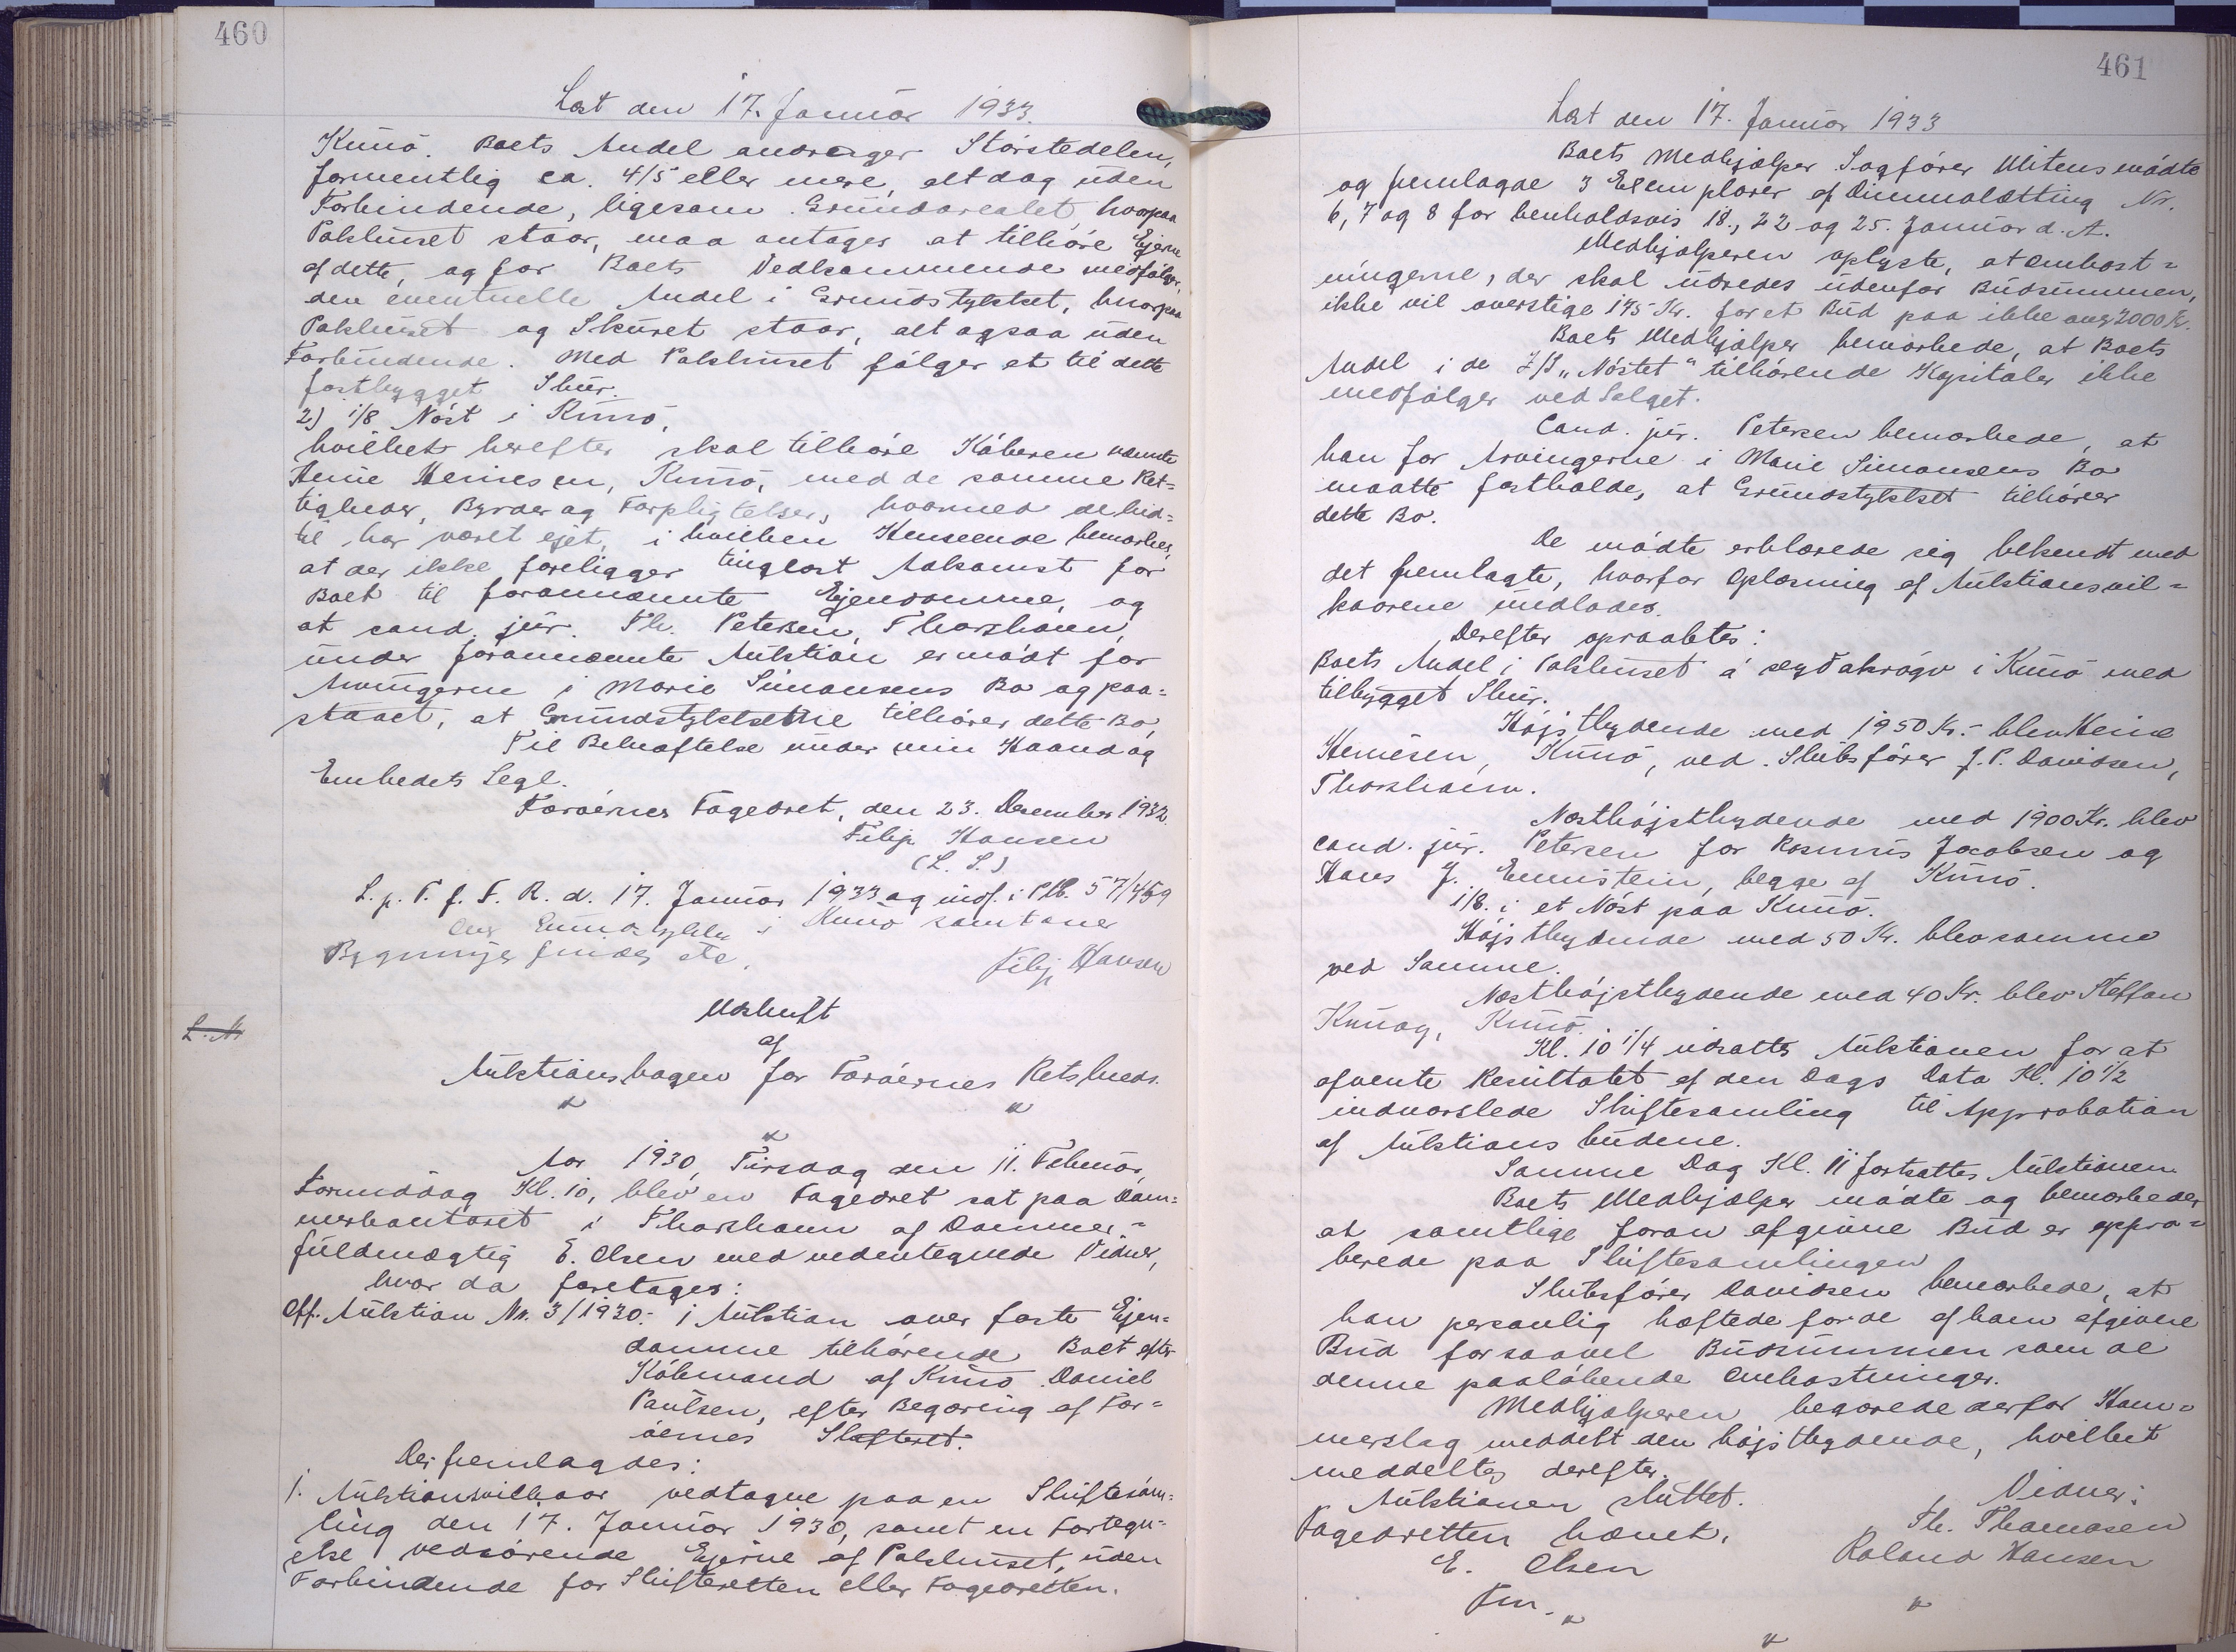 460
Læst den 17. Januar 1933.
Kunö. Boets Andel andrager Størstedelen,
formentlig ca. 4/5 eller mere, alt dog uden
Forbindende, ligesom Grundarealet, hvorpaa
Pakhuset staar, maa antages at tilhöre Ejerne
af dette, og for Boets Vedkommende medfølger
den eventuelle Andel i Grundstykket, hvorpaa
Pakhuset og Skuret staar, alt ogsaa uden
Forbindende. Med Pakhuset følger et til dette
fastbygget Skur.
2) 1/8 Nöst i Kunö,
hvilket herefter skal tilhöre Köberen nævnte
Heine Heinesen, Kunö, med de samme Ret=
tigheder, Byrder og Forpligtelser, hvormed de hid=
til har været ejet, i hvilken Henseende bemærkes,
at der ikke foreligger tinglæst Adkomst for
Boet til forannævnte Ejendomme, og
at cand. jur. Th. Petersen, Thorshavn,
under forannævnte Auktion er mödt for
Arvingerne i Marie Simonsens Bo og paa=
staaet, at Grundstykkerne tilhører dette Bo,
Til Bekræftelse under min Haand og
Embedets Segl.
Færöernes Fogedret, den 23. December 1932.
Filip Hansen
(L. S.)
L. p. T. f. F. R. d. 17. Januar 1933 og indf. i Ptb. 57/459
Om Grundstykke i Kunö samt om
Bygninger findes
Filip Hansen
L. M
Udskrift
af
Auktionsbogen for Færöernes Retskreds.
Aar 1930, Tirsdag den 11. Februar,
Formiddag Kl. 10, blev en Fogedret sat paa Dom=
merkontoret i Thorshavn af Dommer=
fuldmægtig E. Olsen med vedentegnede Vidner,
hvor da foretages:
Off. Auktion No. 3/1930. i Auktion over faste Ejen=
domme tilhörende Boet efter
Köbmand af Kunö Daniel
Paulsen, efter Begæring af Fær=
öernes Skifteret.
Der fremlagdes:
1. Auktionsvilkaar vedtagne paa en Skiftesam=
ling den 17. Januar 1930, samt en Fortegn=
else vedrörende Ejerne af Pakhuset, uden
Forbindende for Skifteretten eller Fogedretten.
461
Læst den 17. Januar 1933
Boets Medhjælper Sagfører Mitens mödte
og fremlagde 3 Exemplarer af Dimmalætting Nr.
6, 7 og 8 for henholdsvis 18., 22 og 25. Januar d. A.
Medhjælperen oplyste, at Omkost=
ningerne, der skal udredes udenfor Budsummen,
ikke vil overstige 175 Kr. for et Bud paa ikke over 2000 Kr.
Boets Medhjælper bemærkede, at Boets
Andel i de I/S „Nöstet“ tilhörende Kapitaler ikke
medfølger ved Salget.
Cand. jur. Petersen bemærkede, at
han for Arvingerne i Marie Simonsens Bo
maatte fastholde, at Grundstykket tilhører
dette Bo.
De mødte erklærede sig bekendt med
det fremlagte, hvorfor Oplæsning af Auktionsvil=
kaarene undlades.
Derefter opraabtes:
Boets Andel i Pakhuset á i Kunö med
tilbygget Skur.
Højstbydende med 1950 Kr. blev Heine
Heinesen, Kunö, ved Skibsförer J. P. Davidsen,
Thorshavn.
Næsthöjstbydende med 1900 Kr. blev
cand. jur. Petersen for Rasmus Jacobsen og
Hans J. Ennistein, begge af Kunö.
1/8. i et Nöst paa Kunö.
Højstbydende med 50 Kr. blev samme
ved Samme.
Næsthöjstbydende med 40 Kr. blev Steffan
Kunoy, Kunö.
Kl. 10 1/4 udsattes Auktionen for at
afvente Resultatet af den Dags Dato Kl. 10 1/2
indvarslede Skiftesamling til Approbation
af Auktionsbudene.
Samme Dag Kl. 11 fortsattes Auktionen.
Boets Medhjælper mødte og bemærkedes
at samtlige foran afgivne Bud er appro=
berede paa Skiftesamlingen
Skibsfører Davidsen bemærkede, at
han personlig hæftede for de af ham afgivne
Bud for saavel Budsummen som de
denne paaløbende Omkostninger.
Medhjælperen begærede derfor Ham=
merslag meddelt den højstbydende, hvilket
meddeltes derefter.
Auktionen sluttet.
Fogedretten hævet.
E. Olsen
Fm.
Vidner:
Th. Thomasen
Roland Hansen